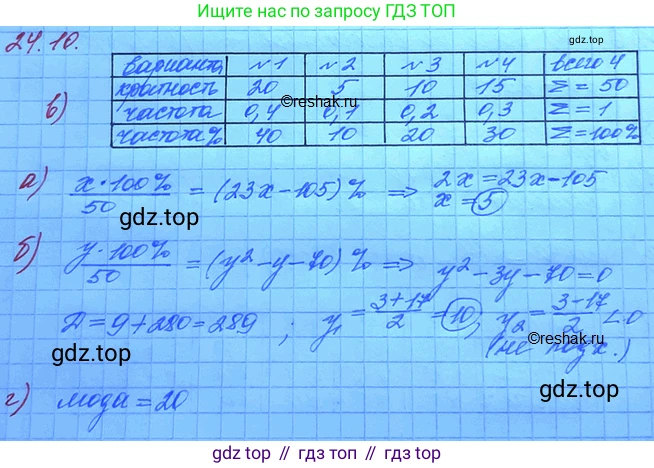 Ищите нас по запросу ГДЗ ТОП
24.10.
в)
варианта №1 №2 №3 №4 всего 4
кратность 20 5 10 15 Σ = 50
частота 0,4 0,1 0,2 0,3 Σ = 1
частота % 40 10 20 30 Σ = 100%
gdz.top
©reshak.ru
а) x·100%/50 = (23x−105)% ⇒ 2x=23x−105
x=5
gdz.top
б) y·100%/50 = (y²−y−70)% ⇒ y²−3y−70=0
Д=9+280=289 ; y₁ = (3+17)/2 = 10, y₂ = (3−17)/2 < 0
(не подх.)
gdz.top
©reshak.ru
г) мода = 20
gdz.top
gdz.top // гдз топ // gdz.top